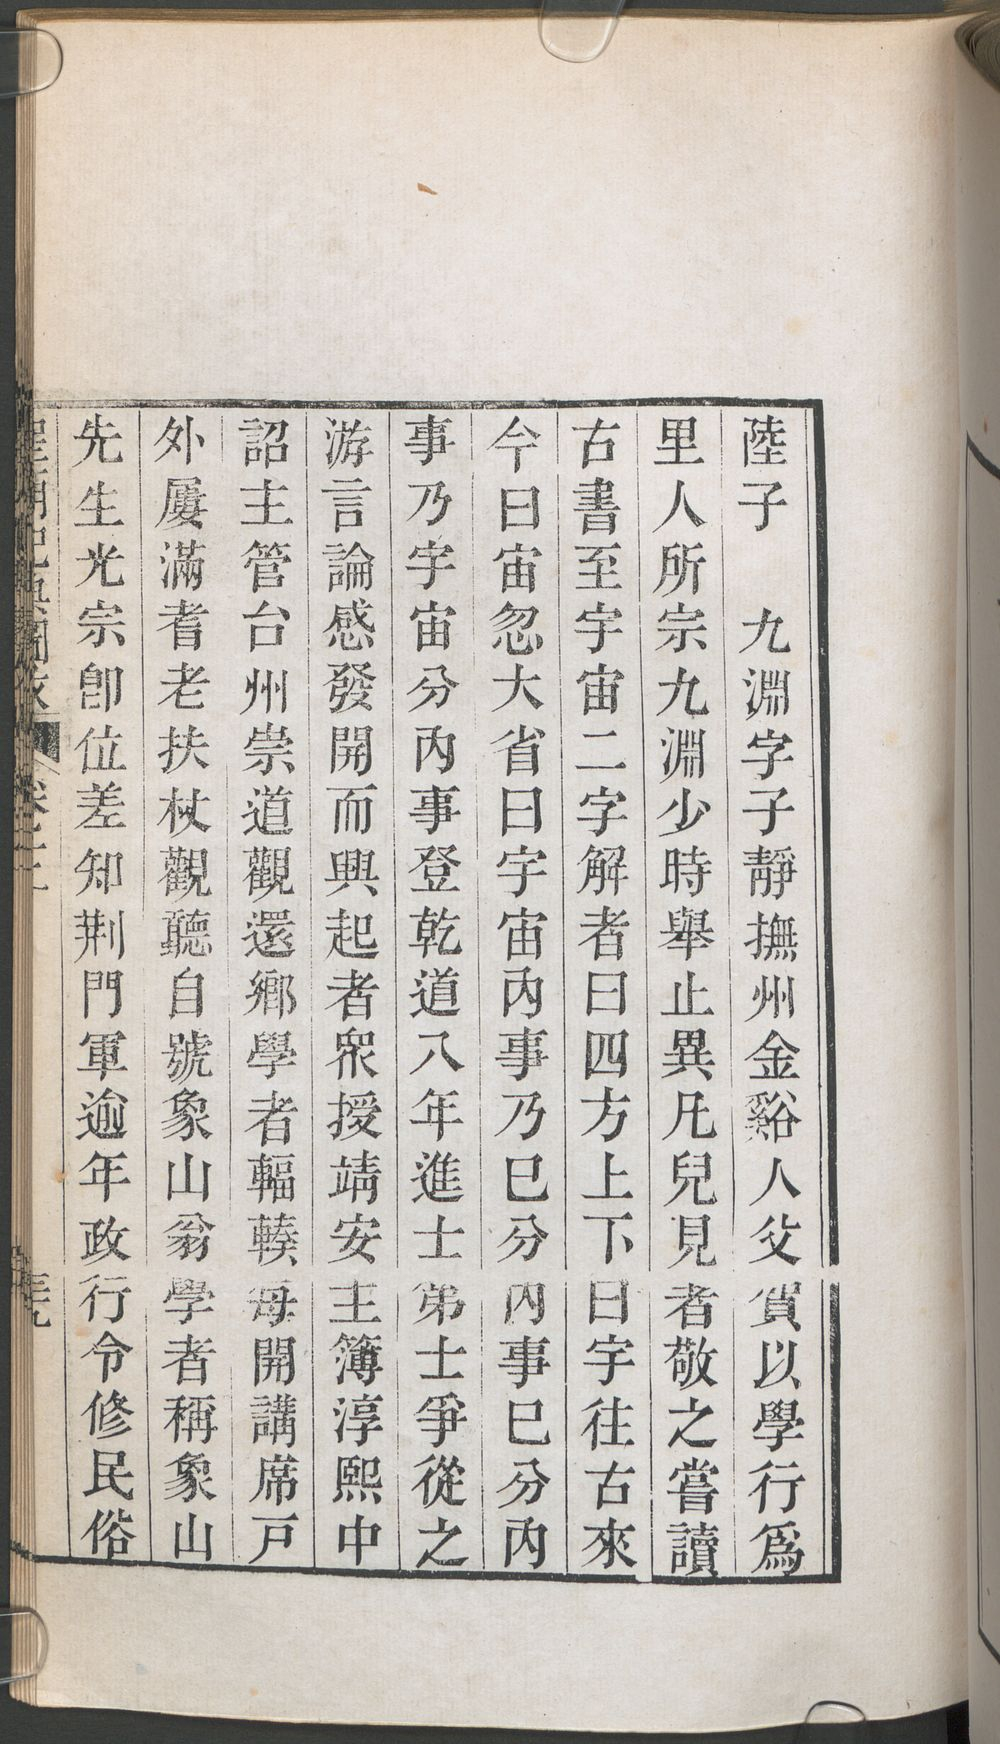 陸子　九淵字子靜撫州金谿人父賀以學行爲
里人所宗九淵少時舉止異凡兒見者敬之嘗讀
古書至宇宙二字解者曰四方上下曰宇往古來
今曰宙忽大省曰宇宙內事乃已分內事已分內
事乃宇宙分內事登乾道八年進士弟士爭從之
游言論感發開而興起者衆授靖安主簿淳熙中
詔主管台州崇道觀還鄉學者輻輳每開講席戸
外屨滿耆老扶杖觀聽自號象山翁學者稱象山
先生光宗卽位差知荆門軍逾年政行令修民俗